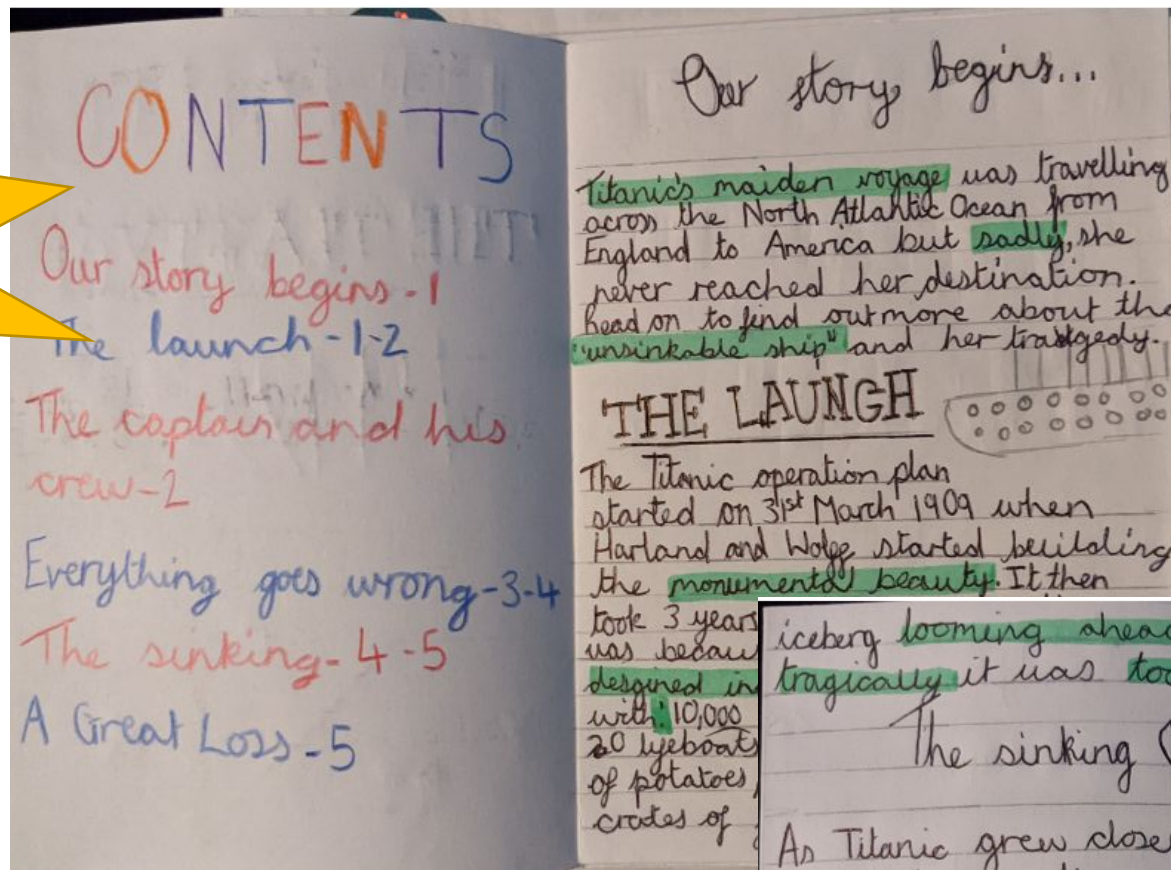 CONTENTS
Our story begins - 1
The launch - 1-2
The captain and his
crew - 2
Everything goes wrong - 3-4
The sinking - 4-5
A Great Loss - 5
Our story begins...
Titanic's maiden voyage was travelling
across the North Atlantic Ocean from
England to America but sadly, she
never reached her destination.
Read on to find outmore about the
"unsinkable ship" and her tradgedy.
THE LAUNCH
The Titanic operation plan
started on 31st March 1909 when
Harland and Wolff started building
the monumental beauty. It then
took 3 years
was
desgined
with: 10,000
20 lifeboats
of potatoes,
crates of
iceberg looming
tragically it was
The sinking
As Titanic grew